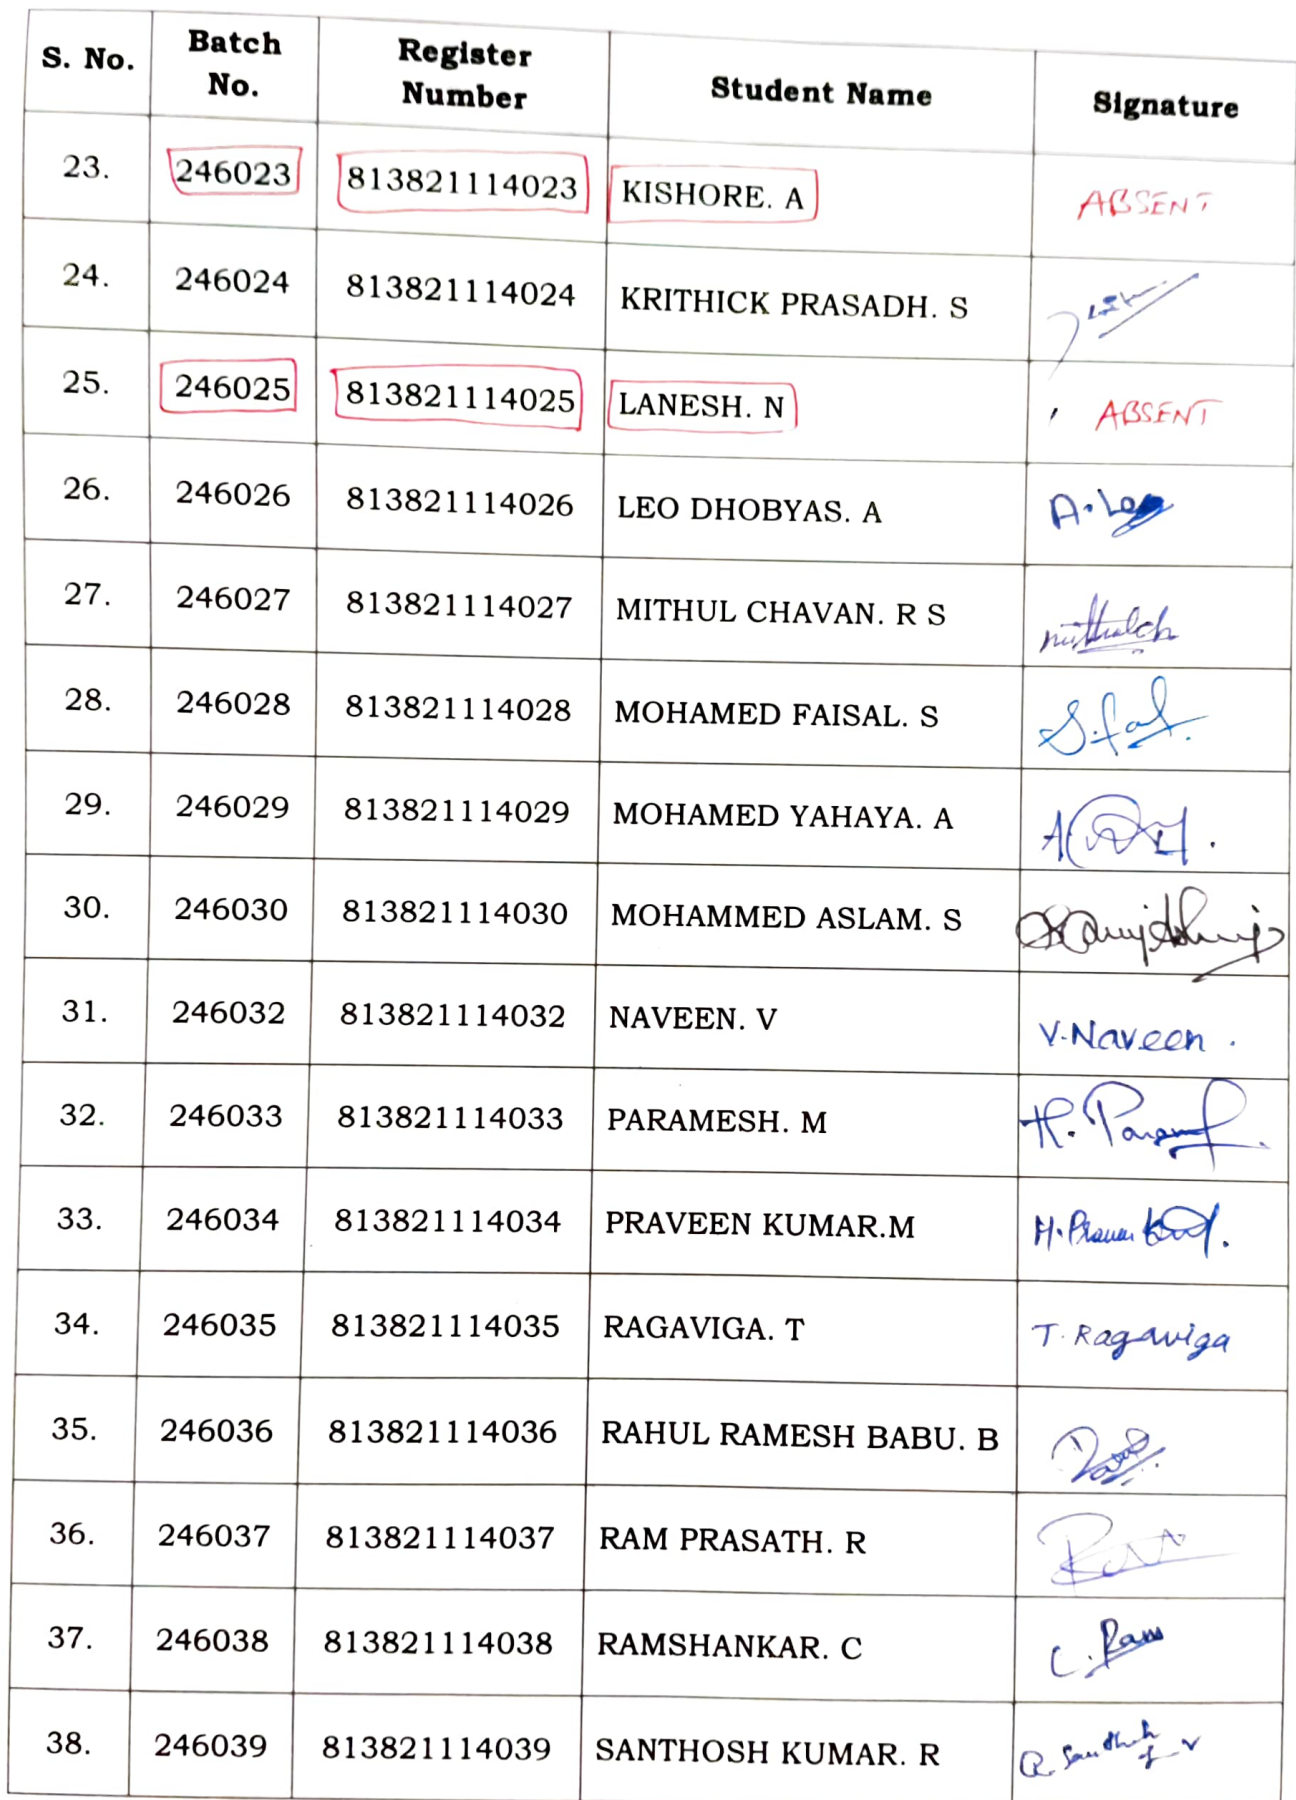 S. No. Batch No. Register Number Student Name Signature
23. 246023 813821114023 KISHORE. A ABSENT
24. 246024 813821114024 KRITHICK PRASADH. S
25. 246025 813821114025 LANESH. N ABSENT
26. 246026 813821114026 LEO DHOBYAS. A A. Leo
27. 246027 813821114027 MITHUL CHAVAN. R S mithulch
28. 246028 813821114028 MOHAMED FAISAL. S
29. 246029 813821114029 MOHAMED YAHAYA. A
30. 246030 813821114030 MOHAMMED ASLAM. S
31. 246032 813821114032 NAVEEN. V V. Naveen.
32. 246033 813821114033 PARAMESH. M
33. 246034 813821114034 PRAVEEN KUMAR.M
34. 246035 813821114035 RAGAVIGA. T T. Ragaviga
35. 246036 813821114036 RAHUL RAMESH BABU. B
36. 246037 813821114037 RAM PRASATH. R
37. 246038 813821114038 RAMSHANKAR. C C. Ram
38. 246039 813821114039 SANTHOSH KUMAR. R